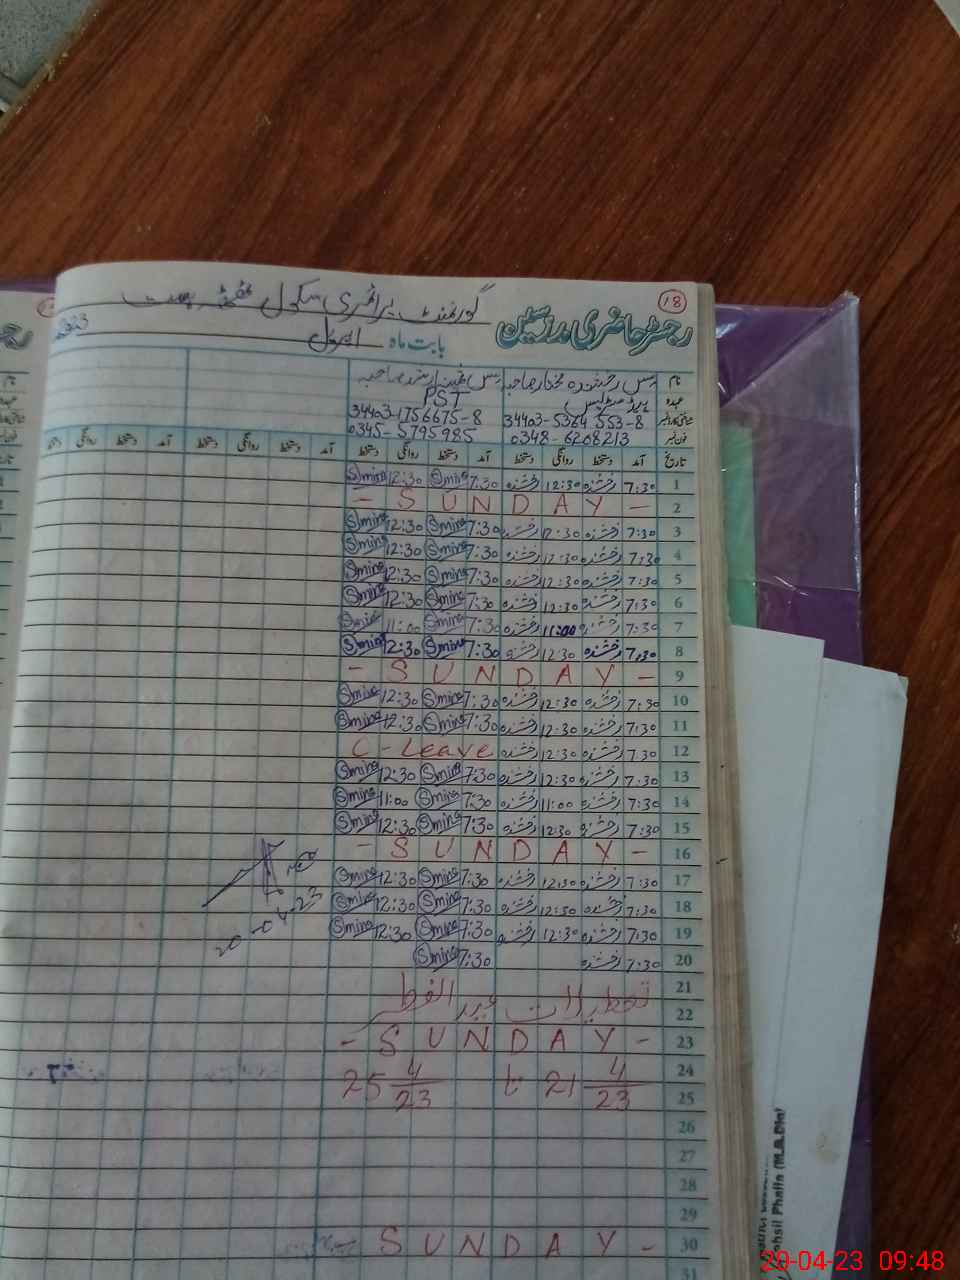 18
رجسٹر حاضری مدرسین
گورنمنٹ پرائمری سکول
بابت ماہ اپریل 2023
نام مس رخشندہ مختار صاحبہ مس ثمینہ ارشد صاحبہ
عہدہ ہیڈ مسٹریس PST
شناختی کارڈ نمبر 34403-5364553-8 34403-1756675-8
فون نمبر 0348-6208213 0345-5795985
تاریخ آمد دستخط روانگی دستخط آمد دستخط روانگی دستخط آمد دستخط روانگی دستخط آمد دستخط روانگی دستخط
1 7:30 رخشندہ 12:30 رخشندہ 7:30 Smina 12:30 Smina
2 - SUNDAY -
3 7:30 رخشندہ 12:30 رخشندہ 7:30 Smina 12:30 Smina
4 7:30 رخشندہ 12:30 رخشندہ 7:30 Smina 12:30 Smina
5 7:30 رخشندہ 12:30 رخشندہ 7:30 Smina 12:30 Smina
6 7:30 رخشندہ 12:30 رخشندہ 7:30 Smina 12:30 Smina
7 7:30 رخشندہ 11:00 رخشندہ 7:30 Smina 11:00 Smina
8 7:30 رخشندہ 12:30 رخشندہ 7:30 Smina 12:30 Smina
9 - SUNDAY -
10 7:30 رخشندہ 12:30 رخشندہ 7:30 Smina 12:30 Smina
11 7:30 رخشندہ 12:30 رخشندہ 7:30 Smina 12:30 Smina
12 7:30 رخشندہ 12:30 رخشندہ C-Leave
13 7:30 رخشندہ 12:30 رخشندہ 7:30 Smina 12:30 Smina
14 7:30 رخشندہ 11:00 رخشندہ 7:30 Smina 11:00 Smina
15 7:30 رخشندہ 12:30 رخشندہ 7:30 Smina 12:30 Smina
16 - SUNDAY -
17 7:30 رخشندہ 12:30 رخشندہ 7:30 Smina 12:30 Smina
18 7:30 رخشندہ 12:30 رخشندہ 7:30 Smina 12:30 Smina
19 7:30 رخشندہ 12:30 رخشندہ 7:30 Smina 12:30 Smina
20 7:30 رخشندہ 7:30 Smina
20-04-23
21
تعطیلات عید الفطر
22
23 - SUNDAY -
24
21 4/23 تا 25 4/23
25
26
27
28
29
30 - SUNDAY -
31
ehsil Phalia (M.B.Din)
20-04-23 09:48